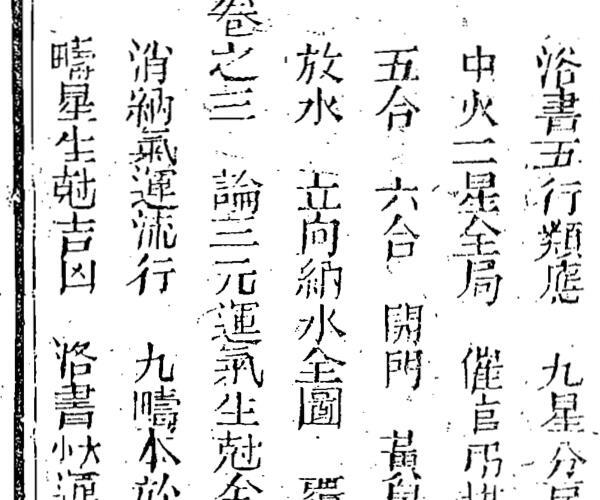 洛書五行類應 九星分
中火二星全局 催官
五合 六合 開門 黃
放水 立向納水全圖
卷之三 論三元運氣生尅全
消納氣運流行 九疇本
疇星生尅吉凶 洛書